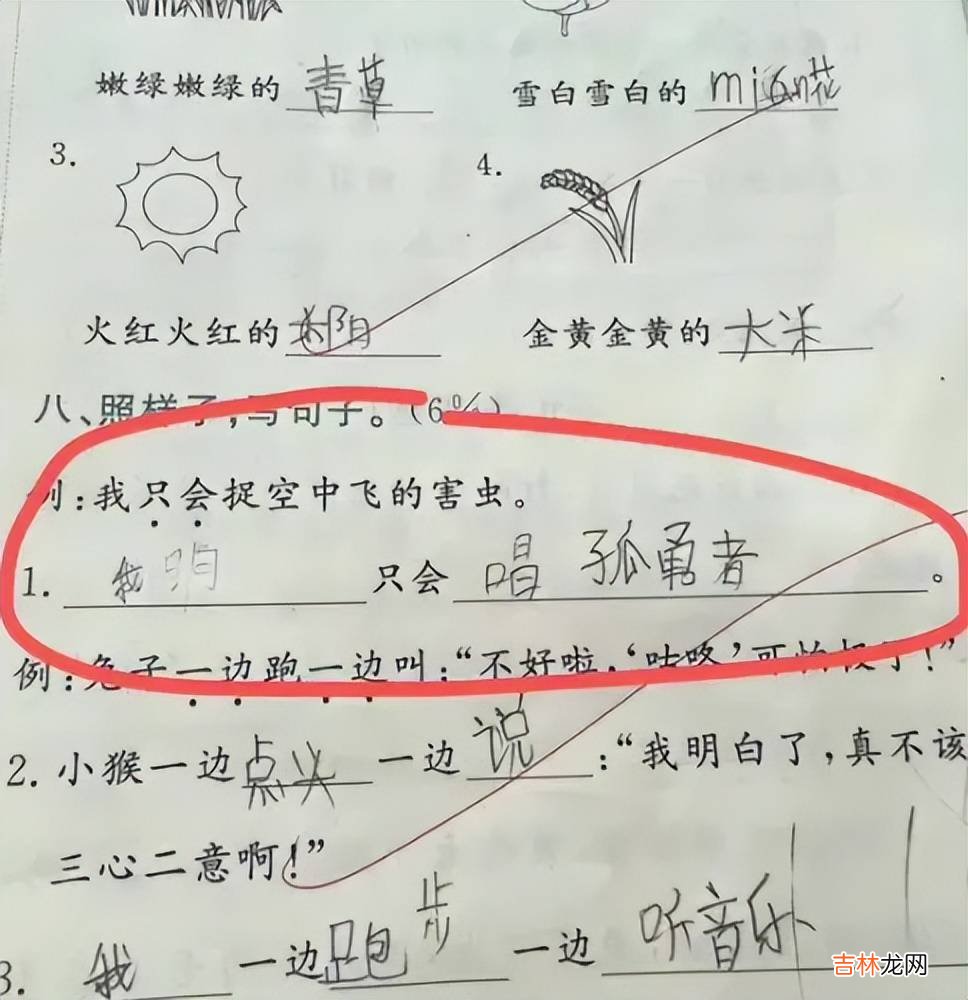 嫩绿嫩绿的青草 雪白雪白的mián花
3. 4.
火红火红的太阳 金黄金黄的大米
八、照样子,写句子。(6%)
例:我只会捉空中飞的害虫。
1. 我 只会唱孤勇者。
例:兔子一边跑一边叫:“不好啦,‘咕咚’可怕极了!”
2. 小猴一边点头一边说:“我明白了,真不该
三心二意啊!”
3. 我一边跑步一边听音乐
吉林龙网